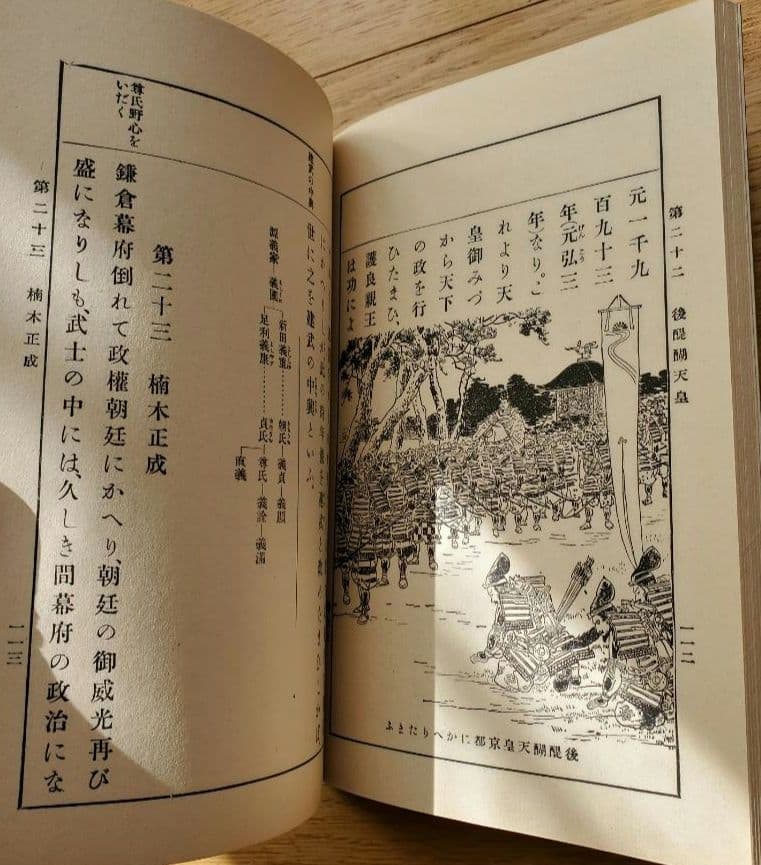 第二十二 後醍醐天皇
一一二
元一千九
百九十三
年(元弘三
年)なり。こ
れより天
皇御みづ
から天下
の政を行
ひたまひ、
護良親王
は功によ
後醍醐天皇京都にかへりたまふ
建武の中興
世に之を建武の中興といふ。
源義家―義國―新田義重………朝氏―義貞―義顯
足利義康………貞氏―尊氏―義詮―義滿
直義
第二十三 楠木正成
尊氏野心を
いだく
鎌倉幕府倒れて政權朝廷にかへり、朝廷の御威光再び
盛になりしも、武士の中には、久しき間幕府の政治にな
第二十三 楠木正成
一一三